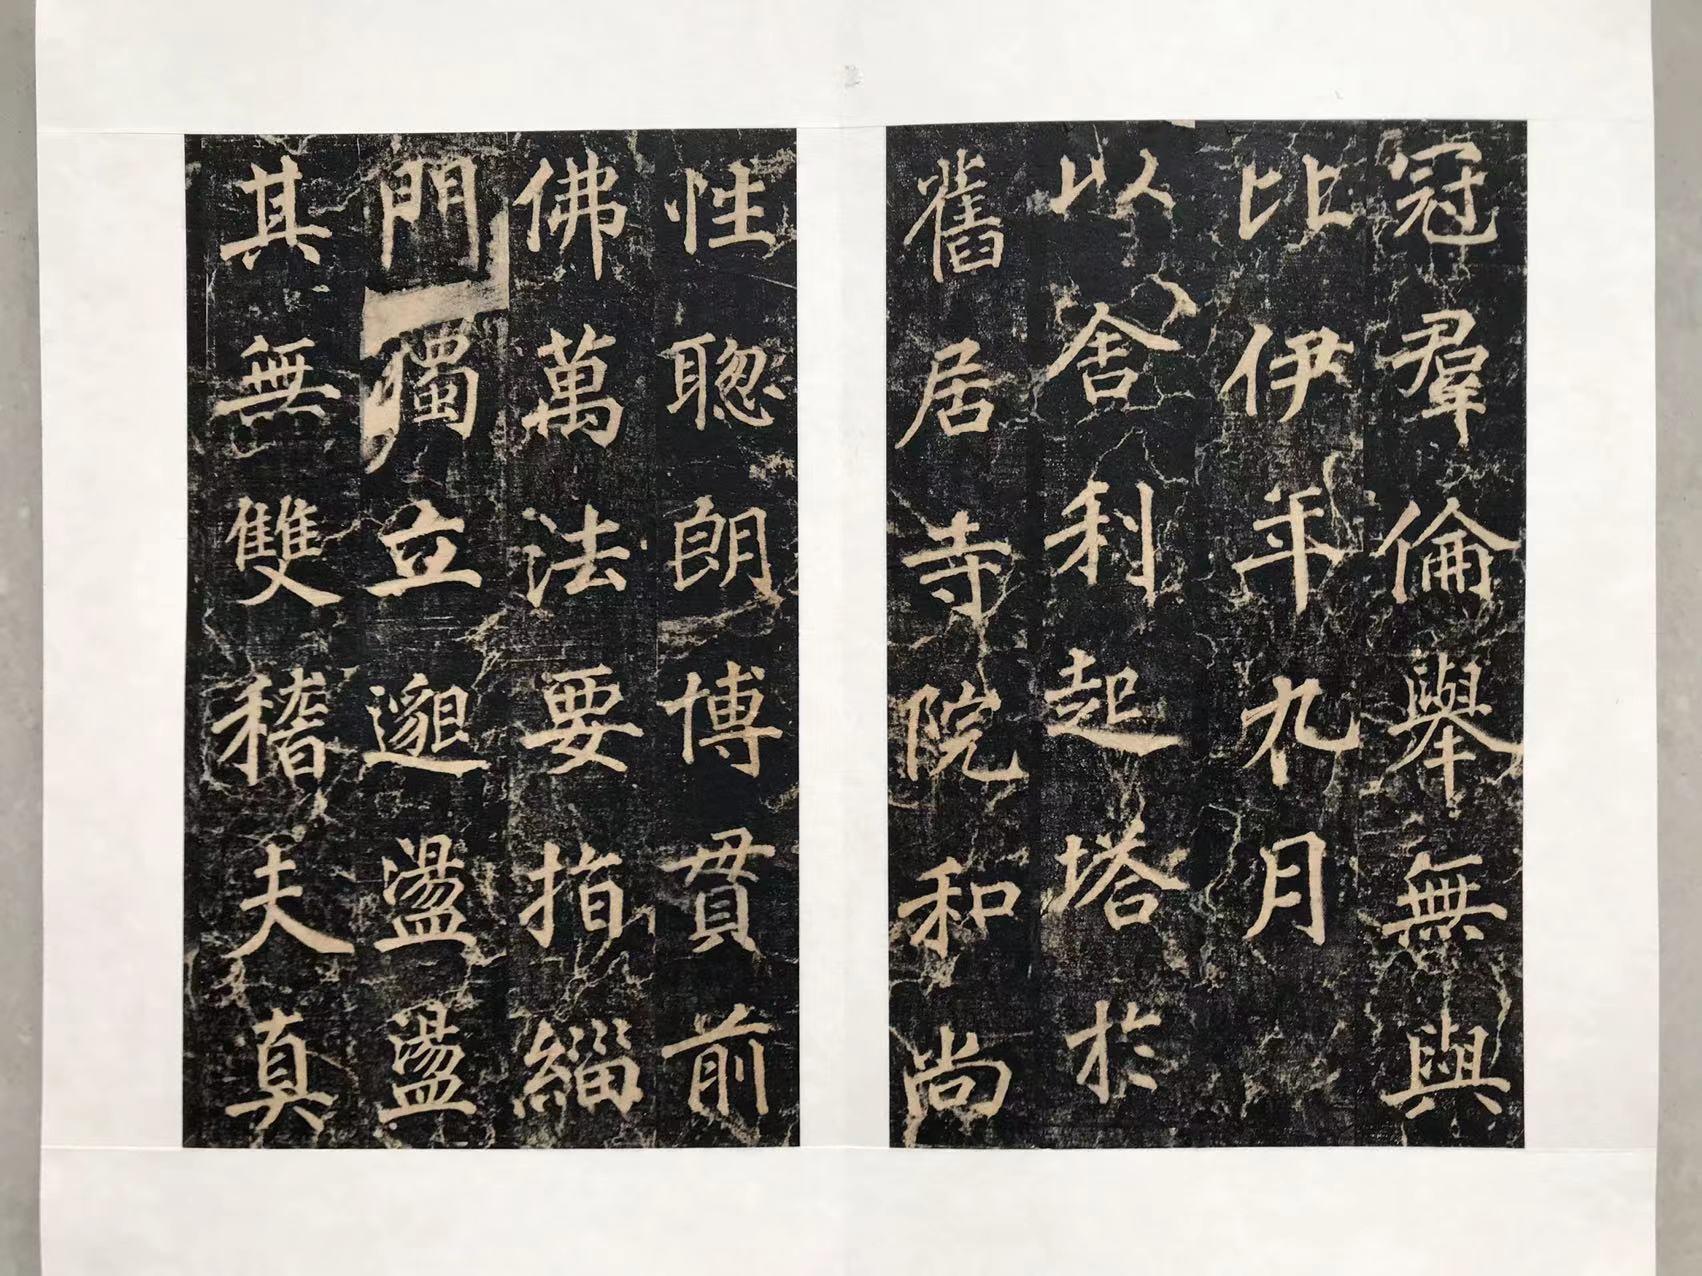 冠羣倫舉無與
比伊年九月
以舍利起塔於
舊居寺院和尚
性聰朗博貫前
佛萬法要指緇
門獨立邈盪盪
其無雙稽夫真